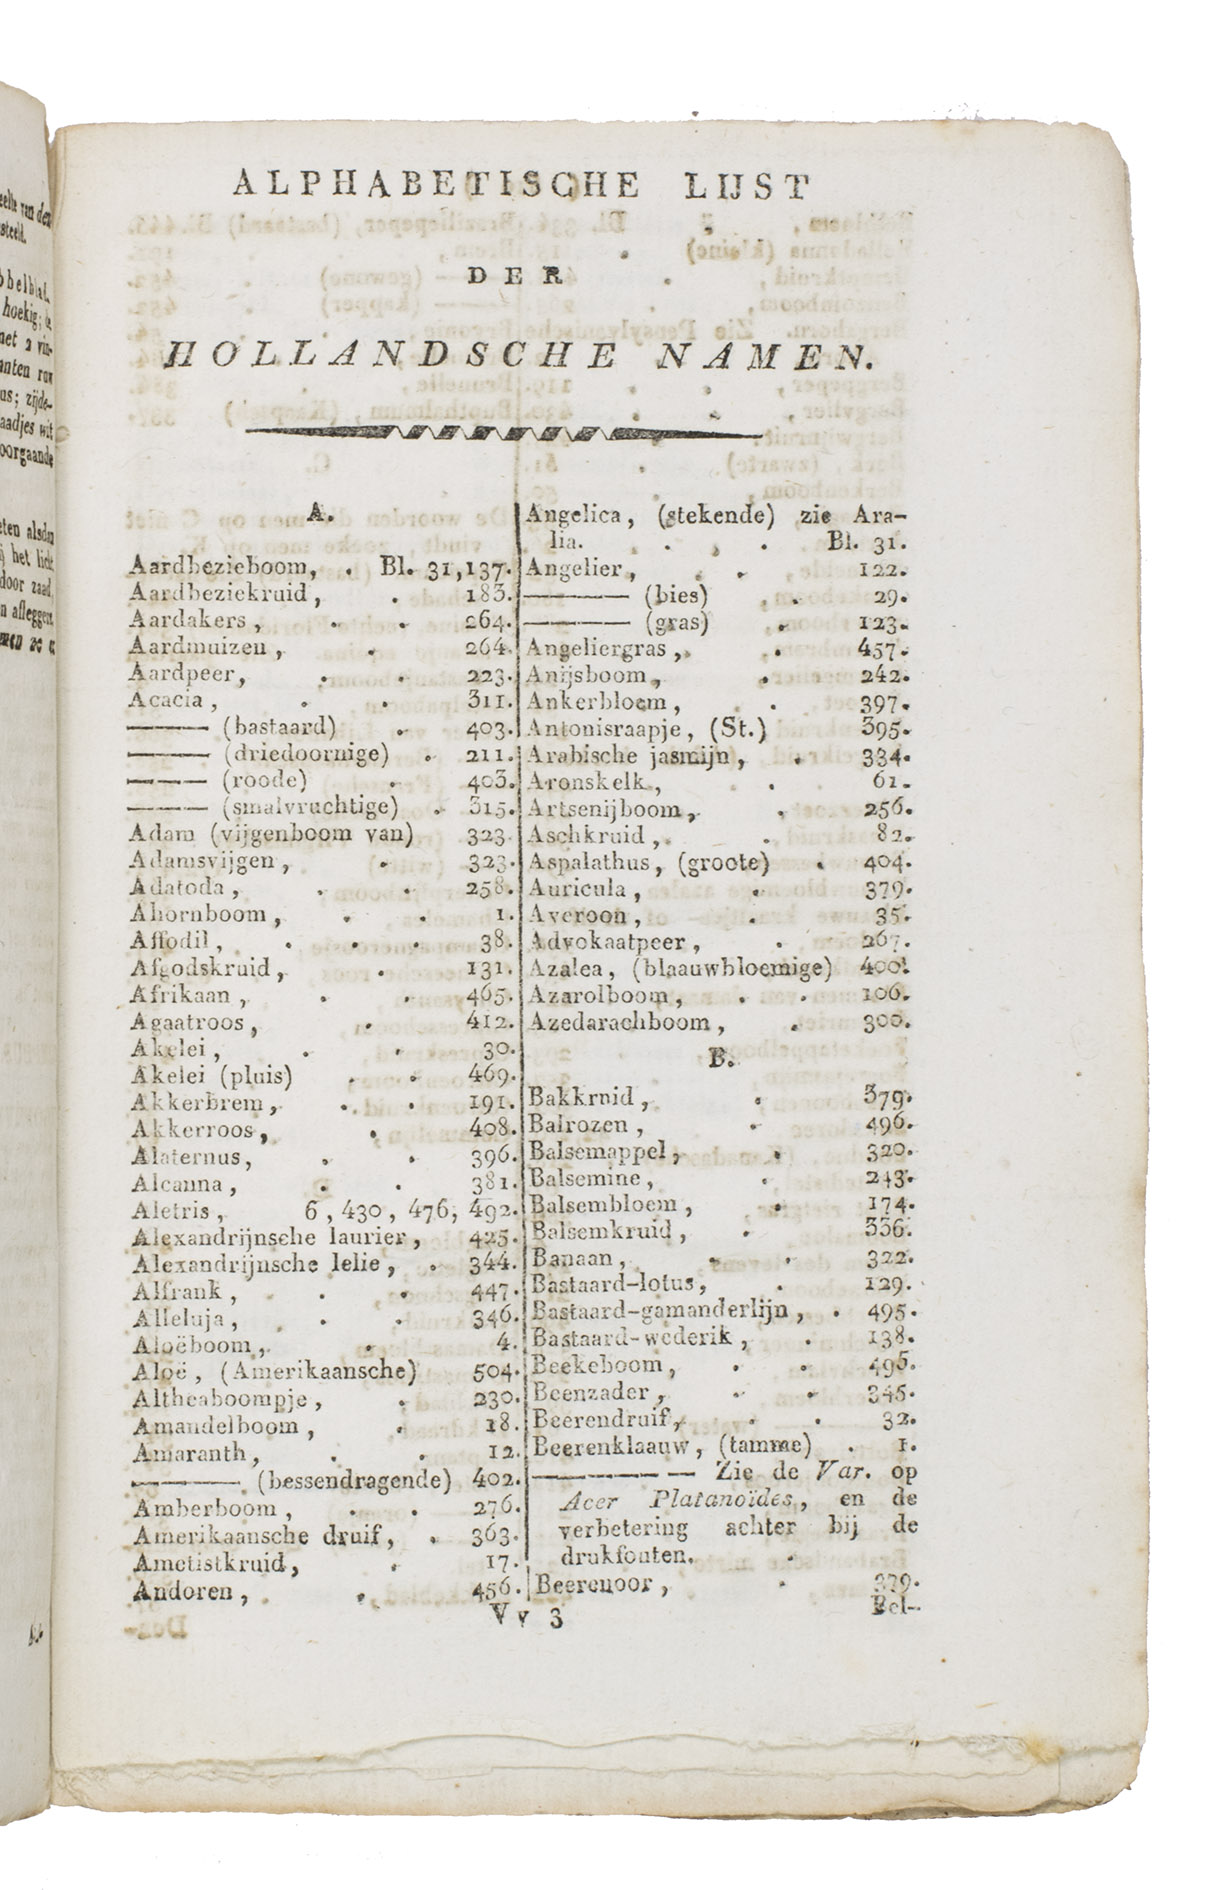 eelte van den
steeld.
bbelblad.
hoekig; de
met 2 vin-
anten ron
us; zijde-
aadjes wit
oorgaande
eten alsdan
het licht
door zaad,
n afleggers
ALPHABETISCHE LIJST
DER
HOLLANDSCHE NAMEN.
A.
Aardbezieboom, . Bl. 31, 137.
Aardbeziekruid, . 183.
Aardakers, . . 264.
Aardmuizen, . 264.
Aardpeer, . . 223.
Acacia, . . 311.
——— (bastaard) . 403.
——— (driedoornige) . 211.
——— (roode) . 403.
——— (smalvruchtige) . 315.
Adam (vijgenboom van) 323.
Adamsvijgen, . 323.
Adatoda, . . 258.
Ahornboom, . . 1.
Affodil, . . . 38.
Afgodskruid, . 131.
Afrikaan, . . 465.
Agaatroos, . 412.
Akelei, . . 30.
Akelei (pluis) . . 469.
Akkerbrem, . . 191.
Akkerroos, . 408.
Alaternus, . . 396.
Alcanna, . . 381.
Aletris, 6, 430, 476, 492.
Alexandrijnsche laurier, 425.
Alexandrijnsche lelie, . 344.
Alfrank, . . . 447.
Alleluja, . . . 346.
Aloëboom, . 4.
Aloë, (Amerikaansche) 504.
Altheaboompje, . 230.
Amandelboom, . 18.
Amaranth, . . 12.
——— (bessendragende) 402.
Amberboom, . . 276.
Amerikaansche druif, . 363.
Ametistkruid, . 17.
Andoren, . 456.
Angelica, (stekende) zie Ara-
lia. . . . Bl. 31.
Angelier, . . 122.
——— (bies) . 29.
——— (gras) . 123.
Angeliergras, . 457.
Anijsboom, . 242.
Ankerbloem, . . 397.
Antonisraapje, (St.) 395.
Arabische jasmijn, . 334.
Aronskelk, . . 61.
Artsenijboom, . 256.
Aschkruid, . 82.
Aspalathus, (groote) . 404.
Auricula, . 379.
Averoon, . 35.
Advokaatpeer, . 267.
Azalea, (blaauwbloemige) 400.
Azarolboom, . . 106.
Azedarachboom, . 300.
B.
Bakkruid, . 379.
Balrozen, . 496.
Balsemappel, . 320.
Balsemine, . 243.
Balsembloem, . 174.
Balsemkruid, . 336.
Banaan, . . 322.
Bastaard-lotus, . 129.
Bastaard-gamanderlijn, . 495.
Bastaard-wederik, . 138.
Beekeboom, . . 495.
Beenzader, . . 345.
Beerendruif, . . 32.
Beerenklaauw, (tamme) . 1.
————— Zie de Var. op
Acer Platanoïdes, en de
verbetering achter bij de
drukfouten.
Beerenoor, . 379.
Vv 3
Bel-